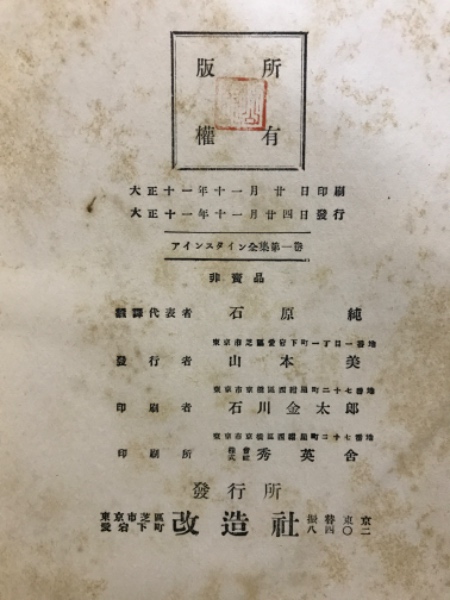 版權所有
大正十一年十一月廿日印刷
大正十一年十一月廿四日發行
アインスタイン全集第一巻
非賣品
飜譯代表者 石原純
東京市芝區愛宕下町一丁目一番地
發行者 山本美
東京市京橋區西紺屋町二十七番地
印刷者 石川金太郎
東京市京橋區西紺屋町二十七番地
印刷所 株式會社 秀英舍
發行所
東京市芝區愛宕下町 改造社 振替東京八四〇二